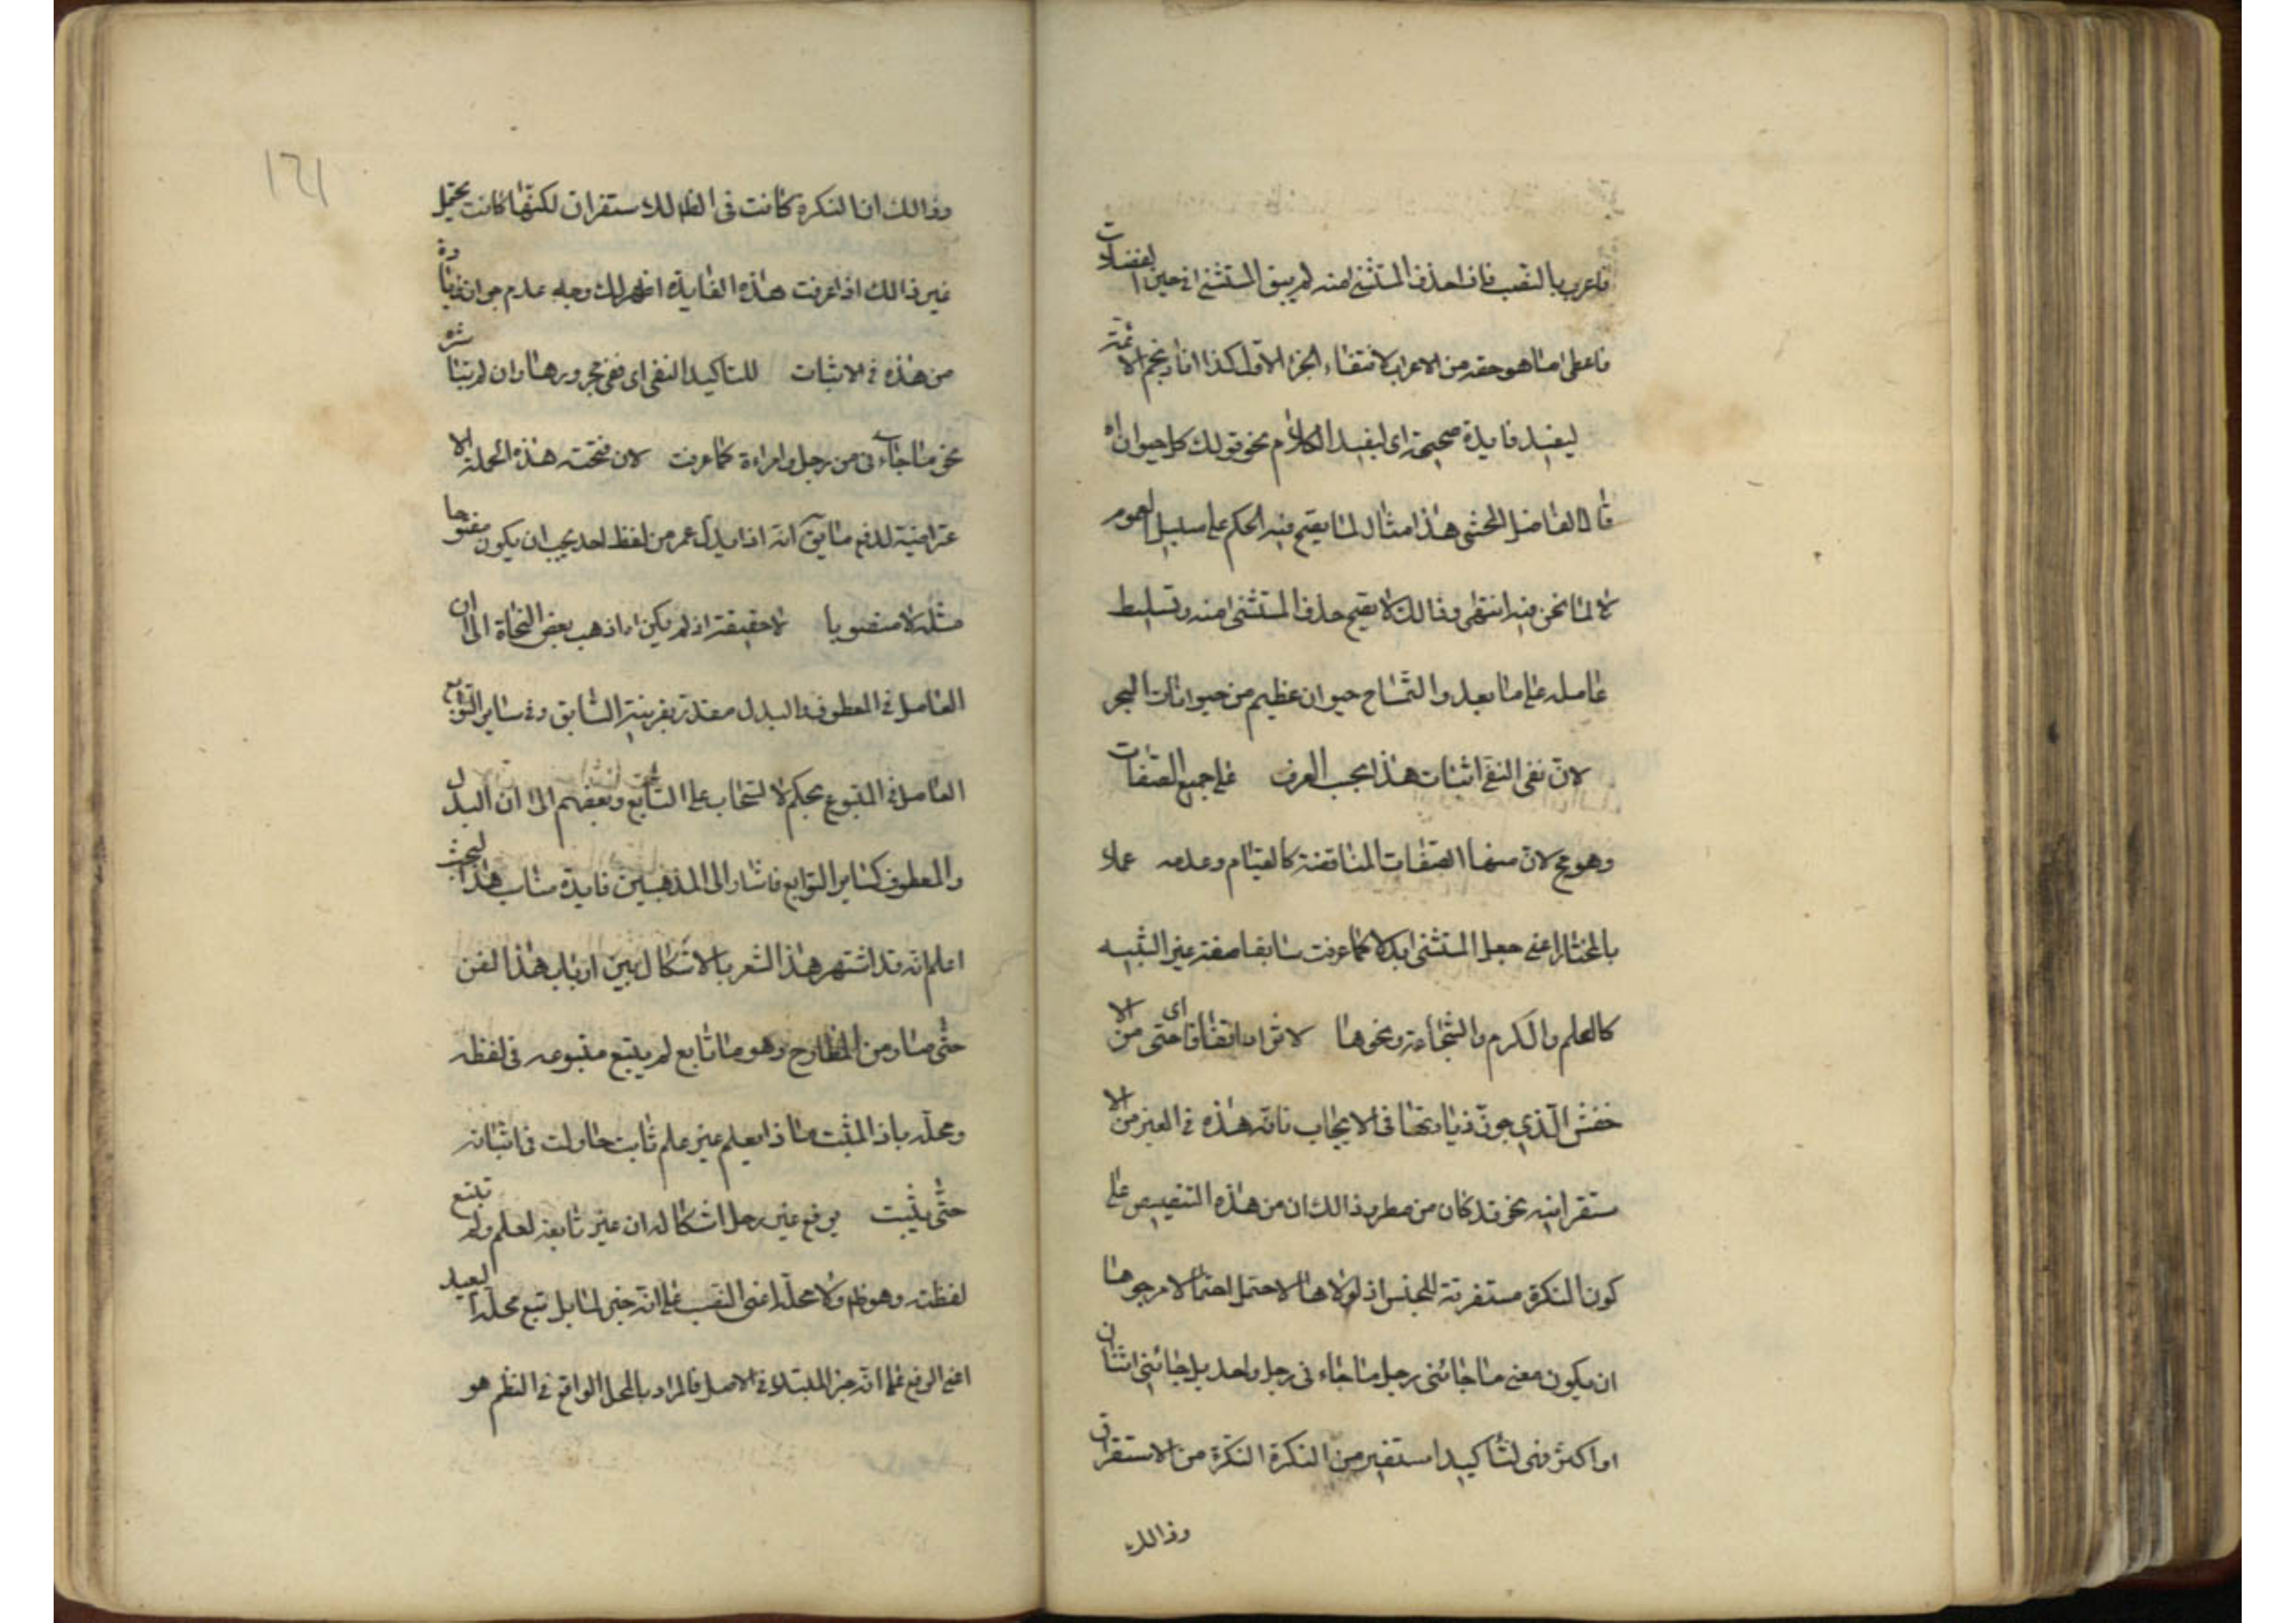 فاعرب بالنصب فاذا حذف المستثنى منه لم يبق المستثنى في حين الفضلات
فاعطى ما هو حقه من الاعراب لانتفاء الجزء الاول كذا افاد نجم الائمة
ليفيد فايدة صحيحة اى ليفيد الكلام نحو قولك كل حيوان اه
قال الفاضل المحشى هذا مثال لما يصح فيه الحكم على سبيل العموم
لا لما نحن فيه انتهى وذالك لا يصح حذف المستثنى منه وتسليط
عامله على ما بعد والتمساح حيوان عظيم من حيوانات البحر
لان نفى النفى اثبات هذا بحسب العرف على جميع الصفات
وهو مح لان منها الصفات المناقضة كالقيام وعدمه عملا
بالمختار اعنى جعل المستثنى بدلا كما عرفت سابقا صفة غير البتيه
كالعلم والكرم والشجاعة ونحوها لاتزاد اتفاقا اى حتى من الا
خفش الذى جوز زيادتها فى الايجاب فانه هذه فى الغير من الا
ستقراقيه نحو قد كان من مطر وذالك ان من هذه التنصيص على
كون النكرة مستغرقة للجنس اذ لولاها لاحتمل احتمالا مرجوحا
ان يكون معنى ما جائنى رجل ما جاء نى رجل واحد بل جائنى اثنان
او اكثر وفى لتاكيد استفيد من النكرة النكرة من الاستغراق
وذالك
١٦١
وذالك ان النكرة كانت فى الظاهر للاستقراق لكنها كانت يحتمل
غير ذالك اذا عرفت هذه الفايدة اظهر لك وجه عدم جواز زيادة
من هذه فى الاثبات للتاكيد النفى اى نفى مجرورها وان لم يتاشره
نحو ما جاءنى من رجل وامراءة كما عرفت لان فتحته هذه الجملة الا
عتراضية لدفع ما يق انه اذا ابدل عمر من لفظ احد يجب ان يكون مفتوحا
مثله لا منصوبا لا حقيقة اذ لم يكن اه اذ ذهب بعض النحاة الى ان
العامل فى المعطوف والبدل مقدر بقرينة السابق وفى ساير التوابع
العامل فى المتبوع بحكم الانسحاب على التابع وبعضهم الى ان البدل
والمعطوف كساير التوابع فاشار الى المذهبين فايدة مناسب هذا البحث
اعلم انه قد اشتهر هذا الشعر بالاشكال بين ارباب هذا الفن
حتى صار من المطارح وهو ما تابع لم يتبع متبوعه فى لفظه
ومحله ياذ المثبت ماذا بعلم غير علم ثابت حاولت فى اثباته
حتى يثبت برفع غير رجل اشكاله ان غير تابعة لعلم ولم تبتع
لفظته وهو ظ ولا محله اعنى النصب على انه خبر لما بل تبع محله البعيد
اعنى الرفع على انه خبر المبتداء فى الاصل فالمراد بالمحل الواقع فى النظم هو